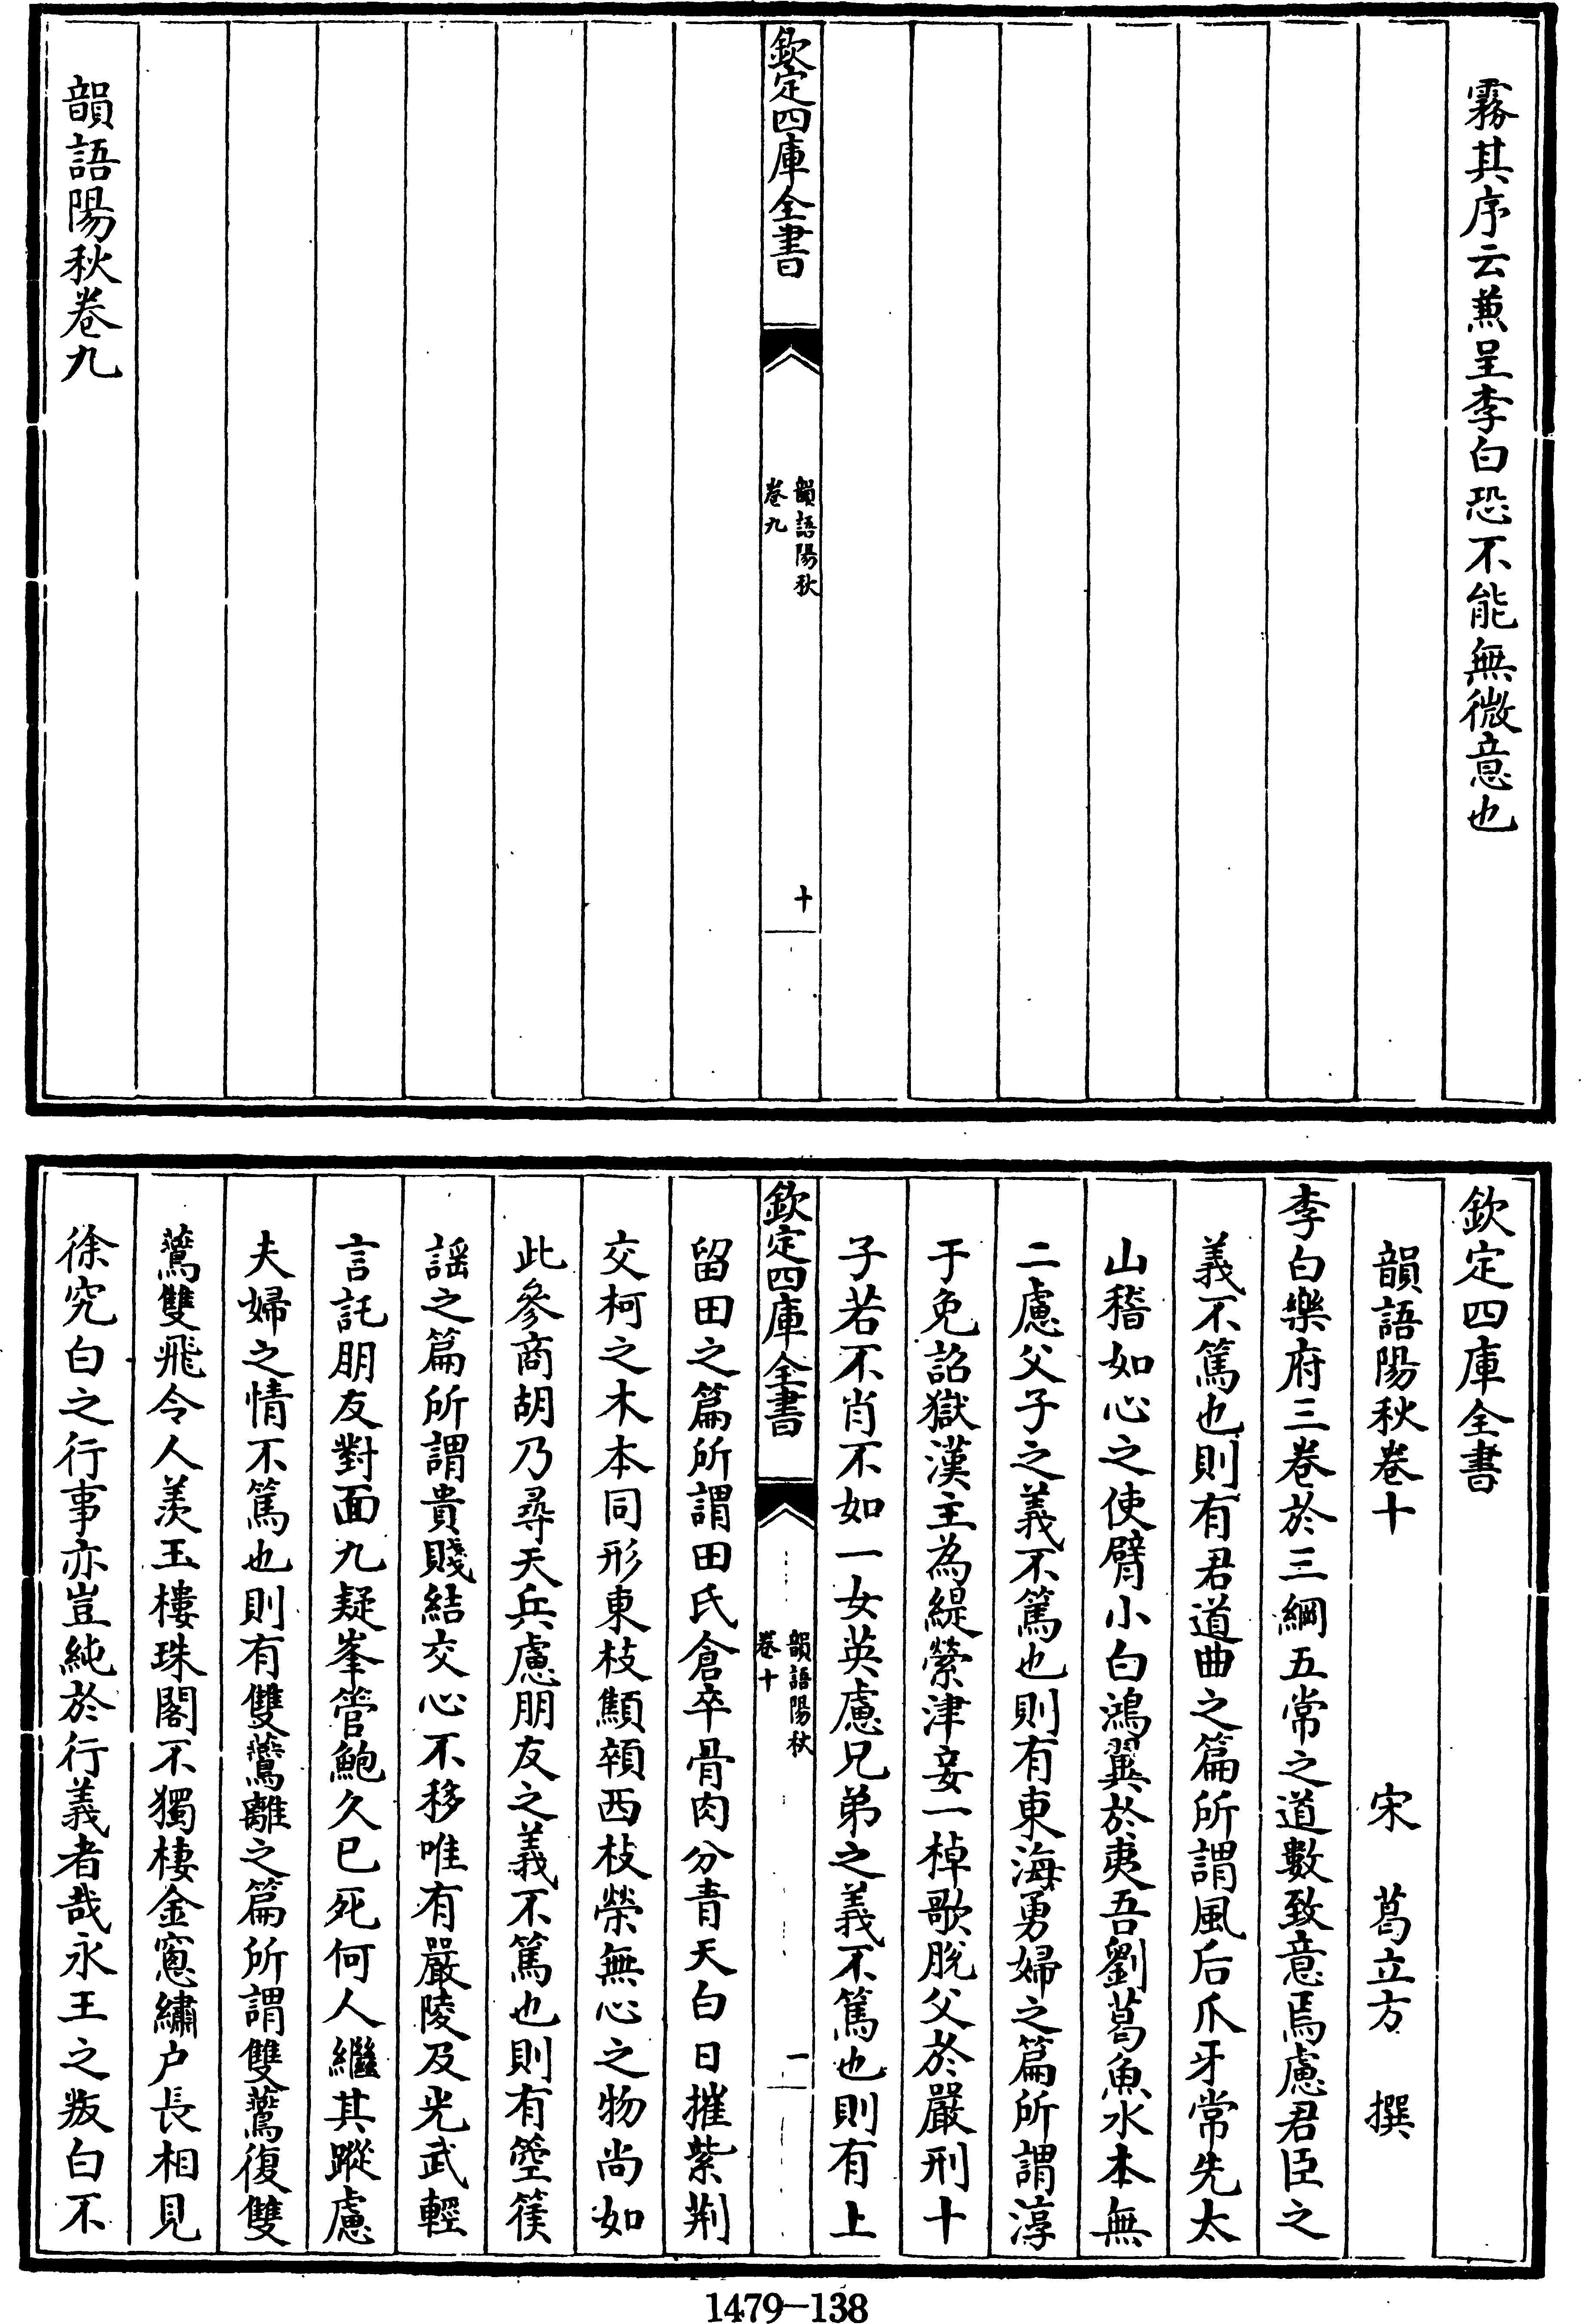 霧其序云兼呈李白恐不能無微意也
欽定四庫全書
韻語陽秋
卷九
十
韻語陽秋卷九
欽定四庫全書
韻語陽秋卷十
宋 葛立方 撰
李白樂府三卷於三綱五常之道數致意焉慮君臣之
義不篤也則有君道曲之篇所謂風后爪牙常先太
山稽如心之使臂小白鴻翼於夷吾劉葛魚水本無
二慮父子之義不篤也則有東海勇婦之篇所謂淳
于免詔獄漢主為緹縈津妾一棹歌脫父於嚴刑十
子若不肖不如一女英慮兄弟之義不篤也則有上
欽定四庫全書
韻語陽秋
卷十
一
留田之篇所謂田氏倉卒骨肉分青天白日摧紫荆
交柯之木本同形東枝顦顇西枝榮無心之物尚如
此參商胡乃尋天兵慮朋友之義不篤也則有箜篌
謡之篇所謂貴賤結交心不移唯有嚴陵及光武輕
言託朋友對面九疑峯管鮑久已死何人繼其蹤慮
夫婦之情不篤也則有雙鷰離之篇所謂雙鷰復雙
鷰雙飛令人羨玉樓珠閣不獨棲金窻繡户長相見
徐究白之行事亦豈純於行義者哉永王之叛白不
1479—138